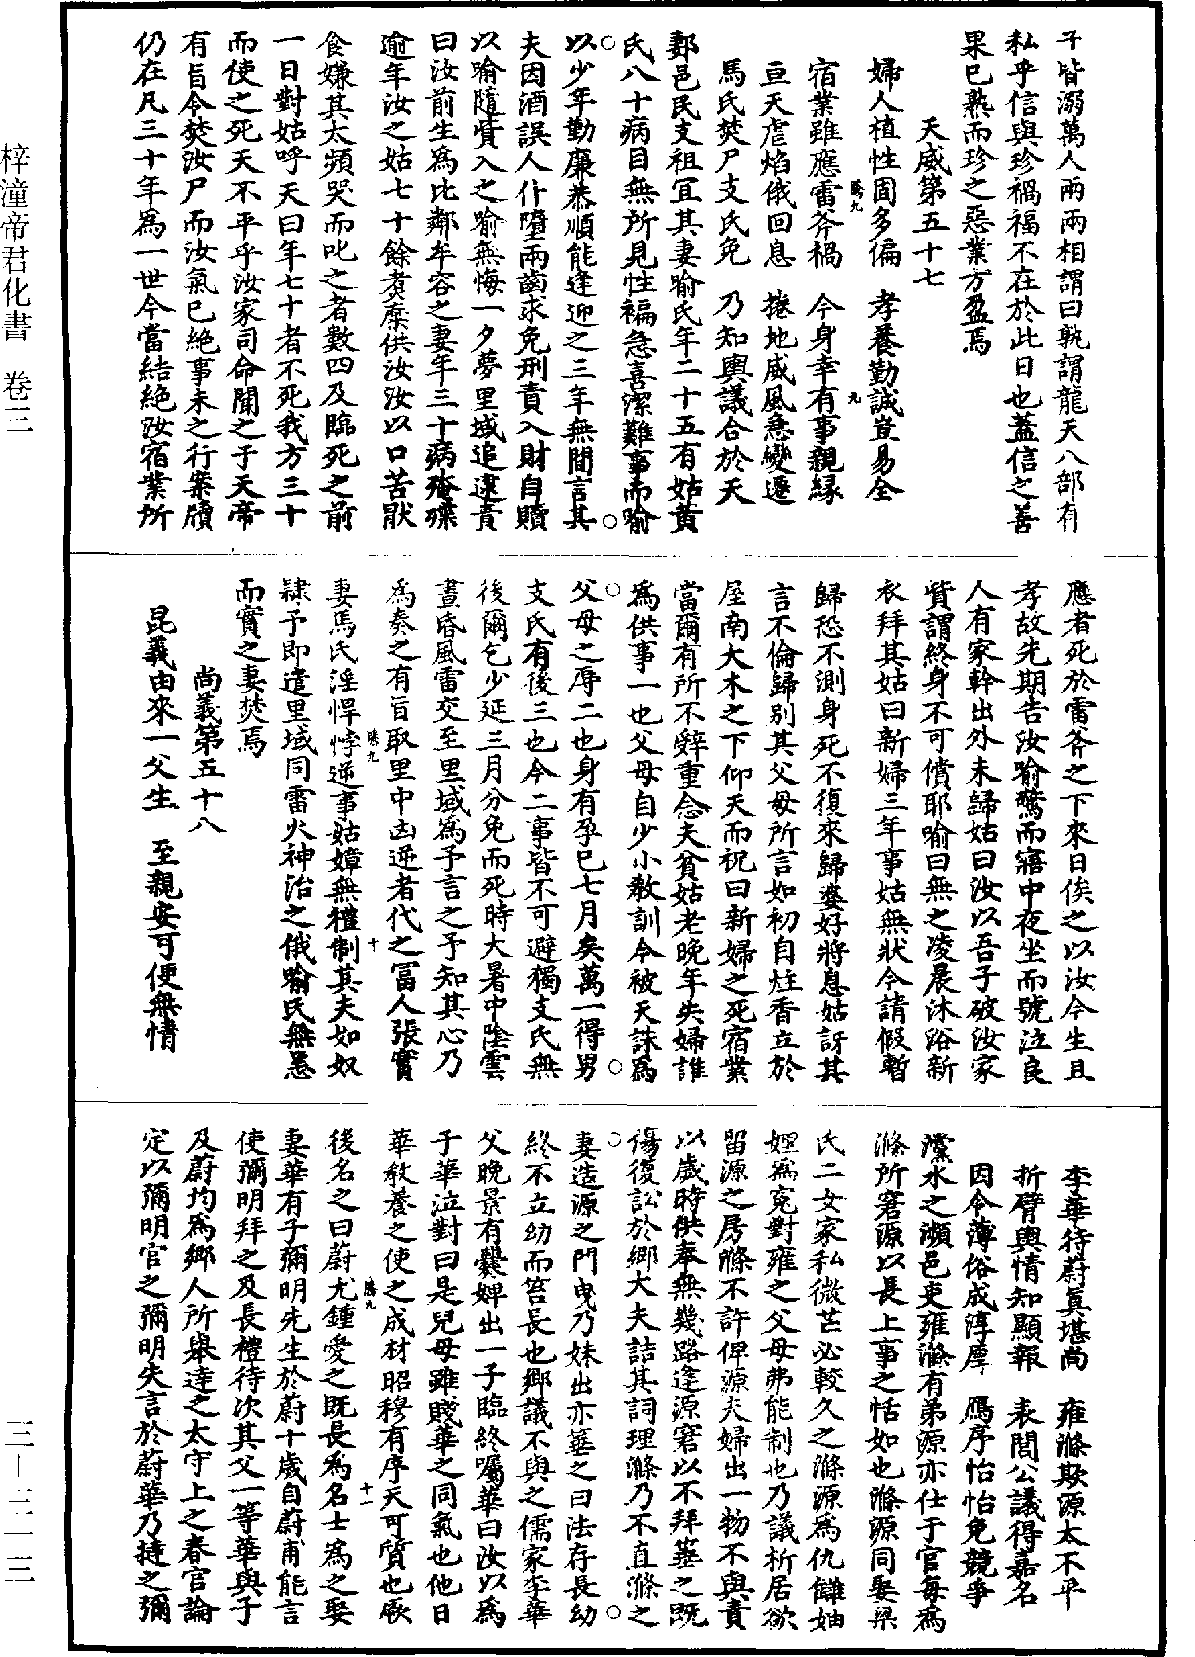 子皆溺萬人兩兩相謂曰孰謂龍天八部有
私乎信與珍禍福不在於此日也蓋信之善
果已熟而珍之惡業方盈焉
天威第五十七
婦人植性固多偏　孝養勤誠豈易全
宿業雖應雷斧禍　今身幸有事親緣
亘天虐焰俄回息　捲地威風急變遷
馬氏焚尸支氏免　乃知輿議合於天
鄣邑民支祖宜其妻喻氏年二十五有姑黄
氏八十病目無所見性褊急喜潔難事而喻
以少年勤廉恭順能逢迎之三年無間言其
夫因酒誤人仆墮兩齒求免刑責入財自贖
以喻隨貲入之喻無悔一夕夢里域追逮責
曰汝前生爲比鄰牟容之妻年三十病殗殜
逾年汝之姑七十餘煑糜供汝汝以口苦猒
食嫌其太頻哭而叱之者數四及臨死之前
一日對姑呼天曰年七十者不死我方三十
而使之死天不平乎汝家司命聞之于天帝
有旨令焚汝尸而汝氣已絶事未之行案牘
仍在凡三十年爲一世今當結絶汝宿業所
應者死於雷斧之下來日俟之以汝今生且
孝故先期告汝喻驚而寤中夜坐而號泣良
人有家幹出外未歸姑曰汝以吾子破汝家
貲謂終身不可償耶喻曰無之凌晨沐浴新
衣拜其姑曰新婦三年事姑無狀今請假暫
歸恐不測身死不復來歸婆好將息姑訝其
言不倫歸別其父母所言如初自炷香立於
屋南大木之下仰天而祝曰新婦之死宿業
當爾有所不辭重念夫貧姑老晚年失婦誰
爲供事一也父母自少小教訓今被天誅爲
父母之辱二也身有孕已七月矣萬一得男
支氏有後三也今二事皆不可避獨支氏無
後爾乞少延三月分免而死時大暑中陰雲
晝昏風雷交至里域爲予言之予知其心乃
爲奏之有旨取里中凶逆者代之冨人張實
妻馬氏淫悍悖逆事姑嫜無禮制其夫如奴
隸予即遣里域同雷火神治之俄喻氏無恙
而實之妻焚焉
尚義第五十八
昆義由來一父生　至親安可便無情
李華待蔚真堪尚　雍滌欺源太不平
折臂輿情知顯報　表閭公議得嘉名
因令薄俗成淳厚　鴈序怡怡免競爭
灙水之瀕邑吏雍滌有弟源亦仕于官每爲
滌所窘源以長上事之恬如也滌源同娶梁
氏二女家私微芒必較久之滌源爲仇讎妯
娌爲寃對雍之父母弗能制也乃議析居欲
留源之房滌不許俾源夫婦出一物不與責
以歲時供奉無幾路逢源窘以不拜箠之既
傷復訟於鄉大夫詰其詞理滌乃不直滌之
妻造源之門曳乃妹出亦箠之曰法存長幼
終不立幼而笞長也鄉議不與之儒家李華
父晚景有嬖婢出一子臨終囑華曰汝以爲
後名之曰蔚尤鍾愛之既長爲名士爲之娶
于華泣對曰是兒母雖賤華之同氣也他日
華敎養之使之成材昭穆有序天可質也厥
妻華有子彌明先生於蔚十歲自蔚甫能言
使彌明拜之及長禮待次其父一等華與子
及蔚均爲鄉人所舉達之太守上之春官論
定以彌明官之彌明失言於蔚華乃撻之彌
梓潼帝君化書　卷三
三-三一三